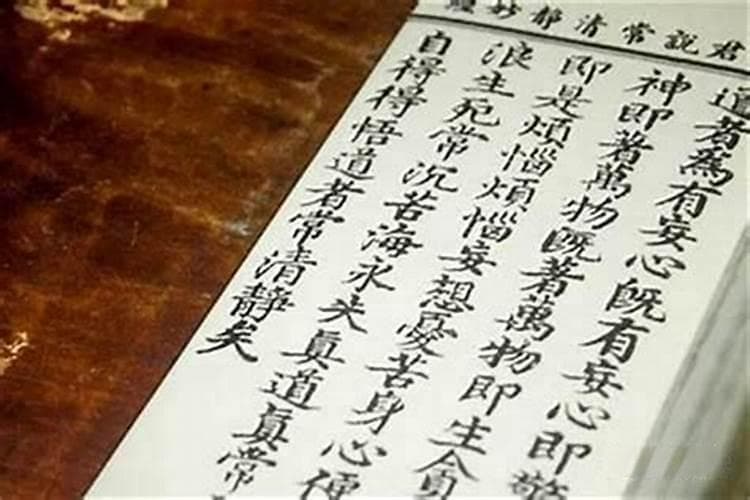 君說常清靜妙
道者為有妄心既有妄心即驚
神即著萬物既著萬物即生貪
即是煩惱煩惱妄想憂苦身心便
浪生死常沉苦海永失眞道眞常
自得得悟道者常清靜矣